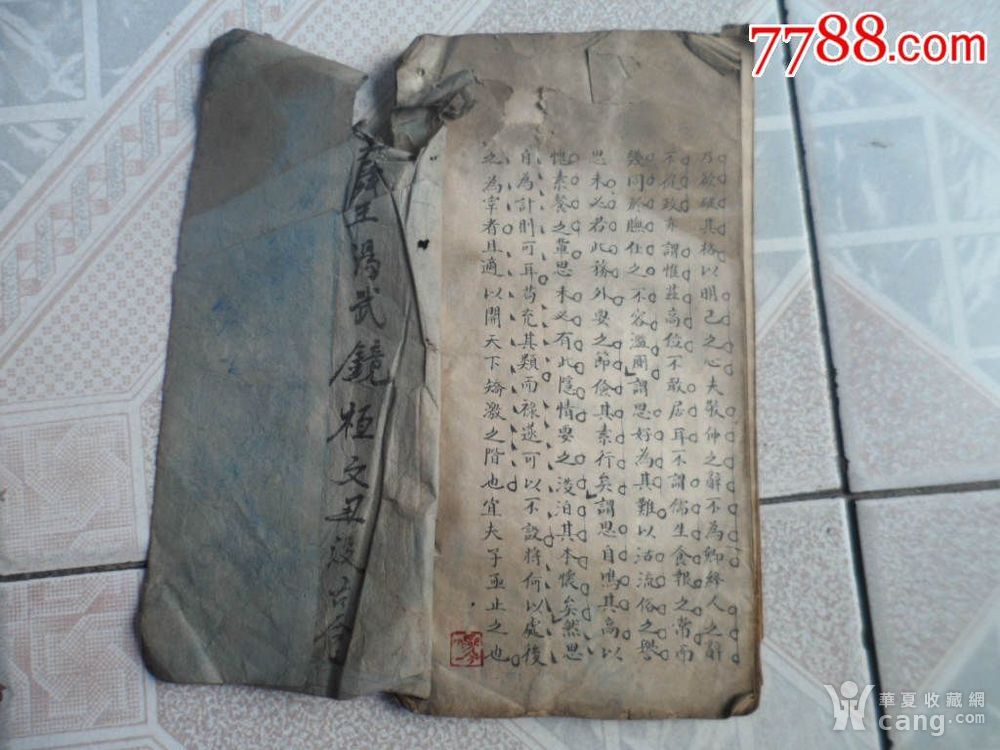 7788.com
乃欲破其格以明己之心夫敬仲之辭不為卿絳人之辭
不從政亦謂惟茲高位不敢居耳不謂儒生食報之常而
幾同於膴仕之不容濫周謂思好為其難以沽流俗之譽
思未必若此務外要之節儉其素行矣謂思自鳴其高以
愧素餐之輩思未必有此隱情要之淡泊其本懷矣然思
自為計則可耳苟充其類而祿遂可以不設將何以處後
之為宰者且適以開天下矯激之階也宜夫子亟止之也
王湯武鏡桓文丑
華夏收藏網
cang.com